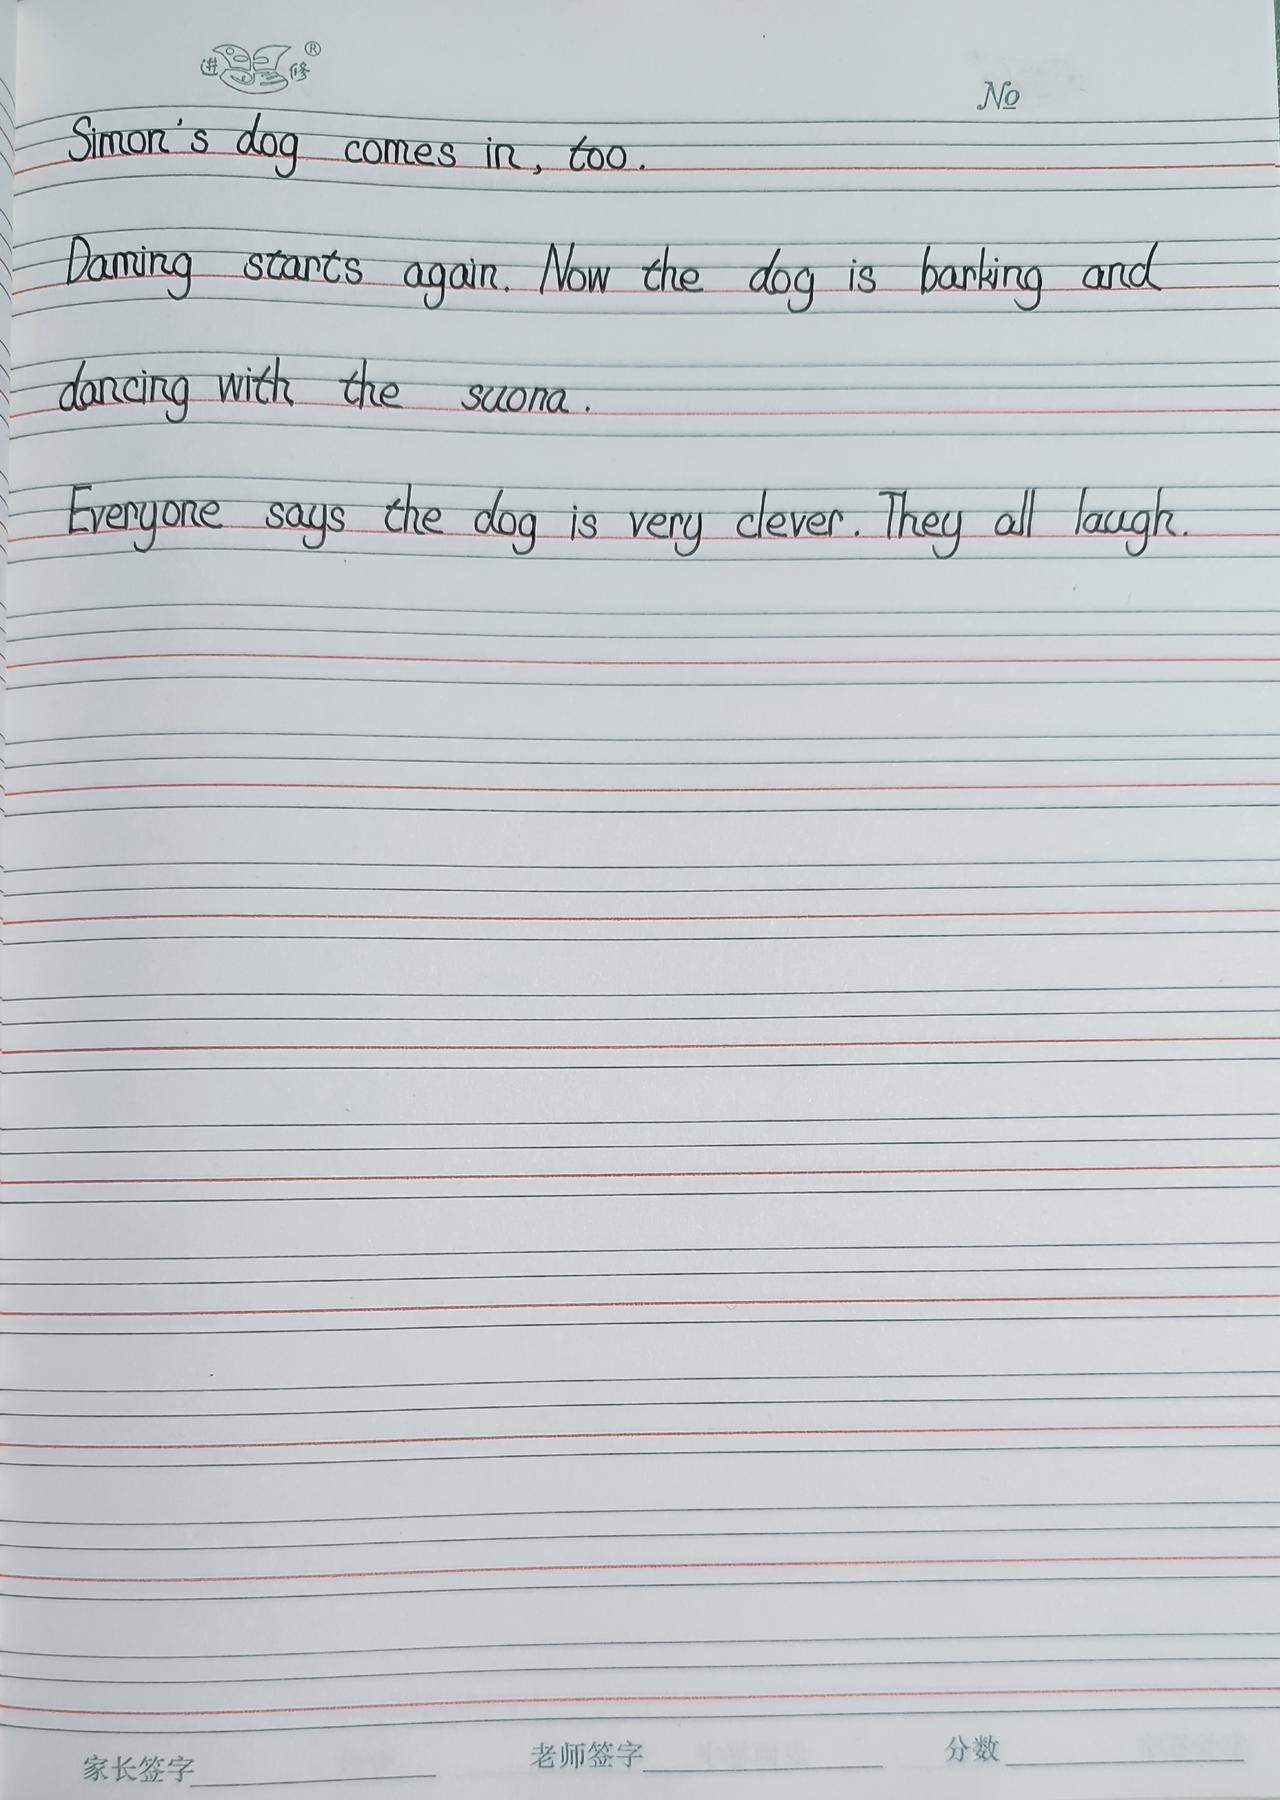 进修®
No
Simon's dog comes in, too.
Daming starts again. Now the dog is barking and
dancing with the suona.
Everyone says the dog is very clever. They all laugh.
家长签字 老师签字 分数